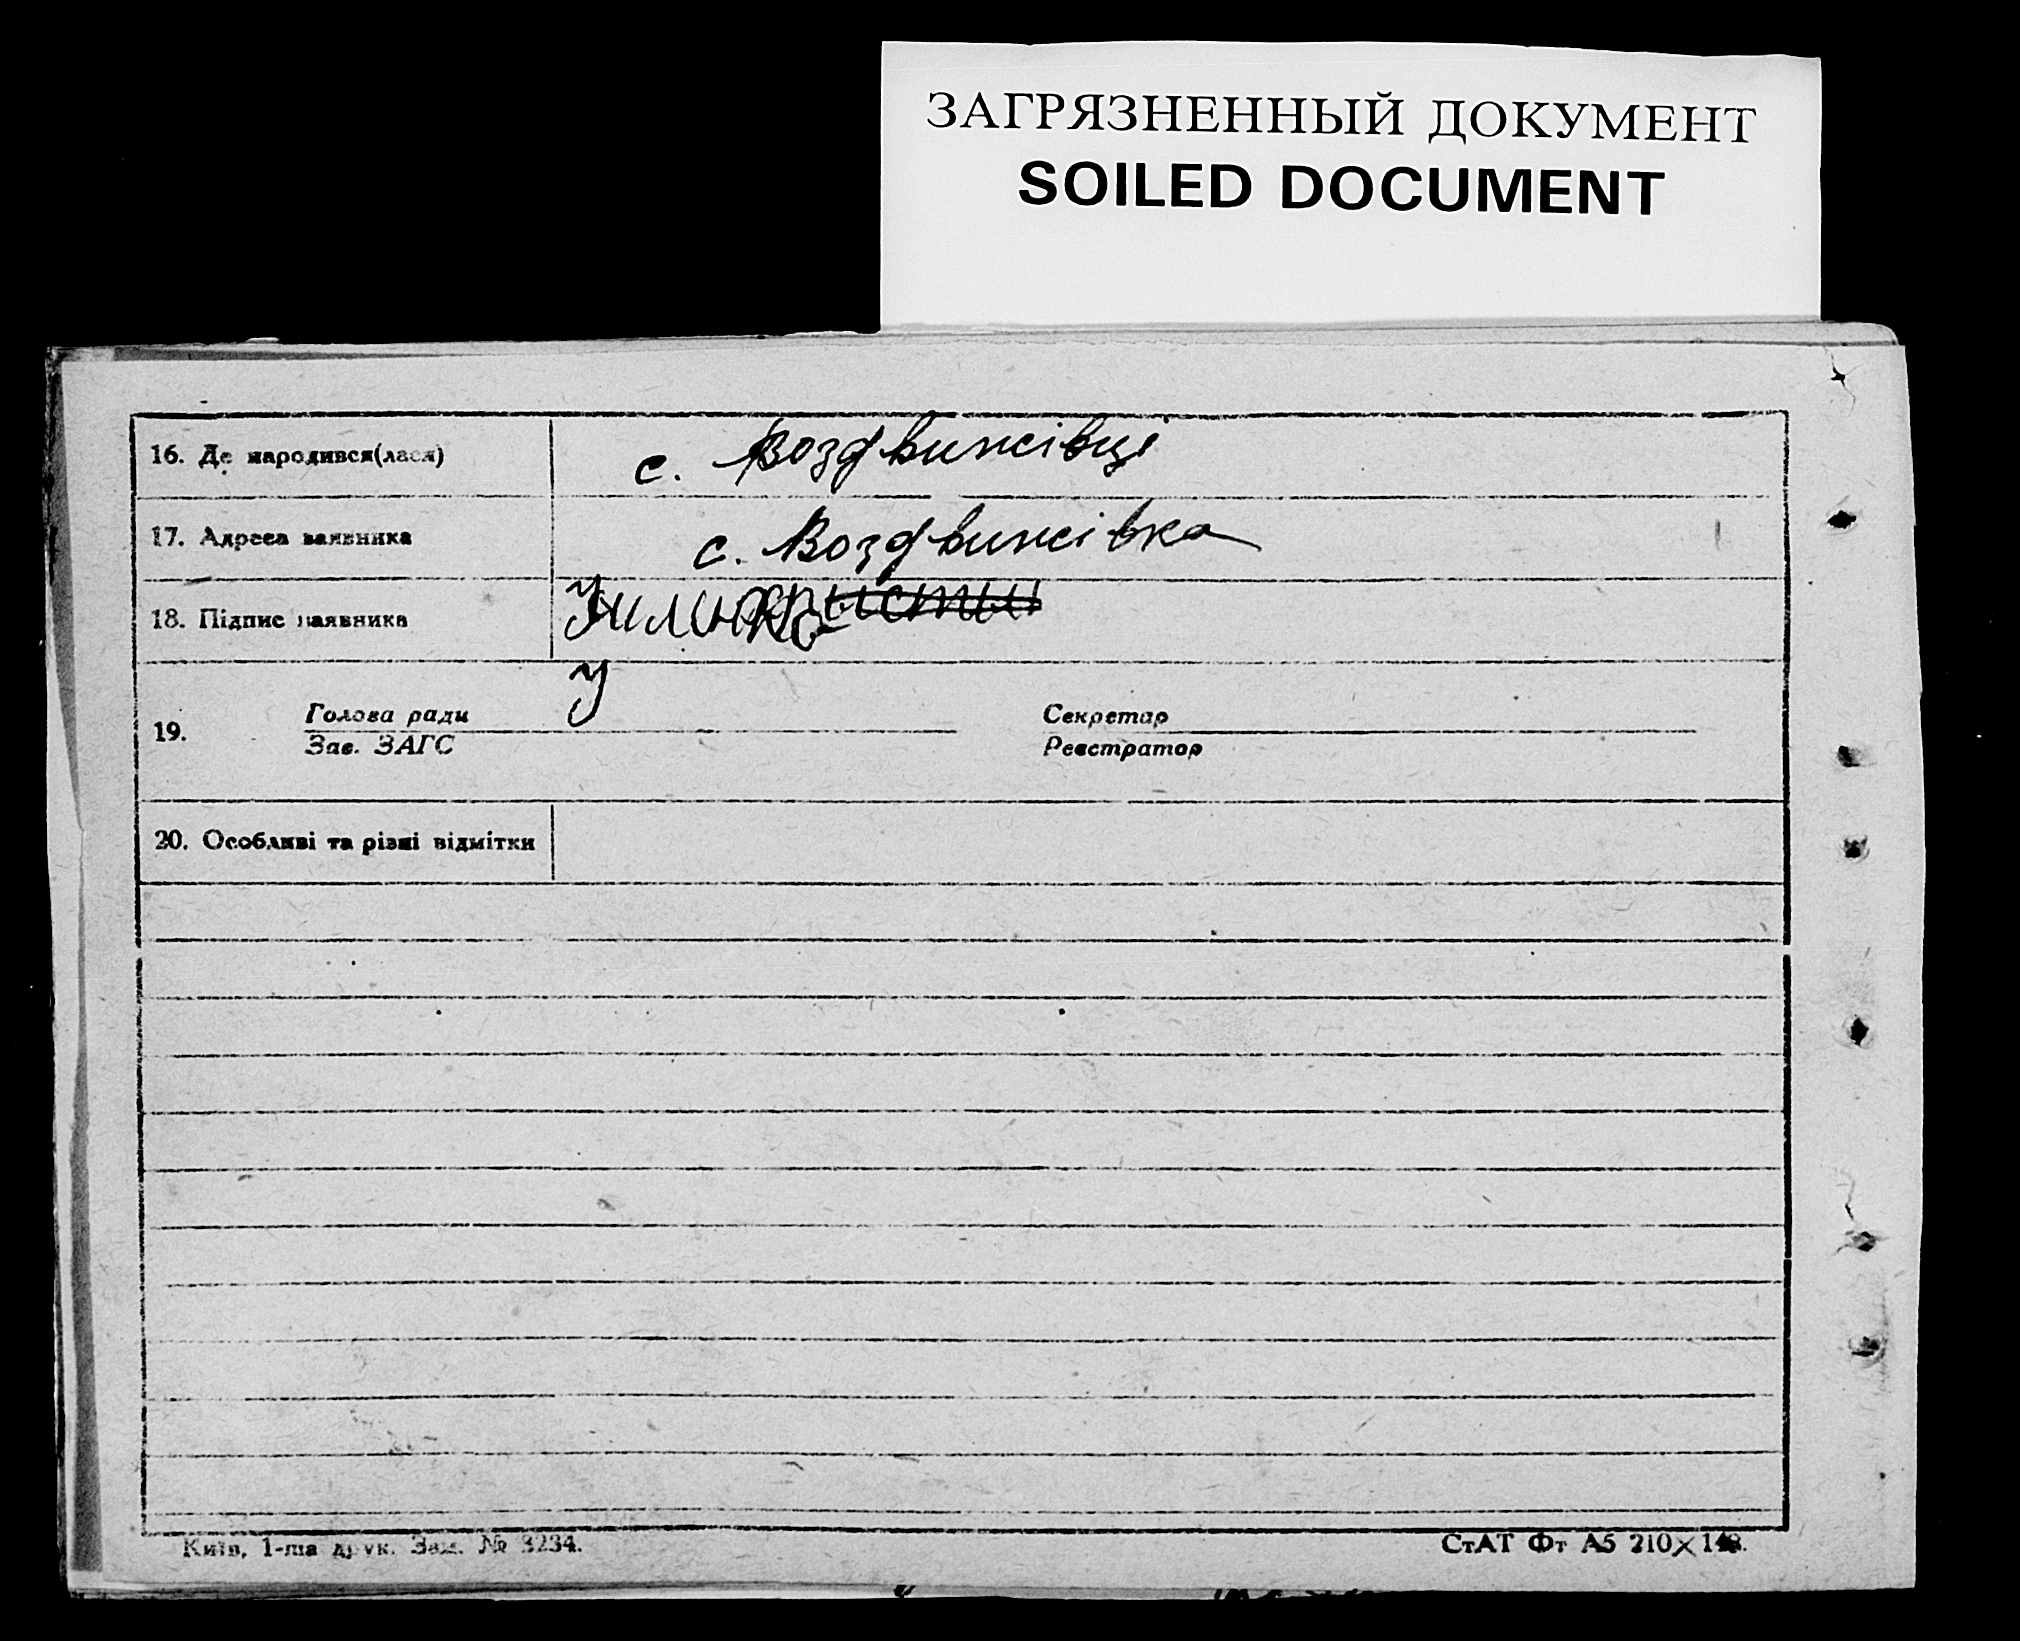 ЗАГРЯЗНЕННЫЙ ДОКУМЕНТ
SOILED DOCUMENT
16. Де народився(лася) с. Воздвижівці
17. Адреса заявника с. Воздвижівка
18. Підпис заявника
19. Голова ради Секретар
Зав. ЗАГС Реєстратор
20. Особливі та різні відмітки
Київ, 1-ша друк. Зам. № 3234. СтАТ Фт А5 210×148.